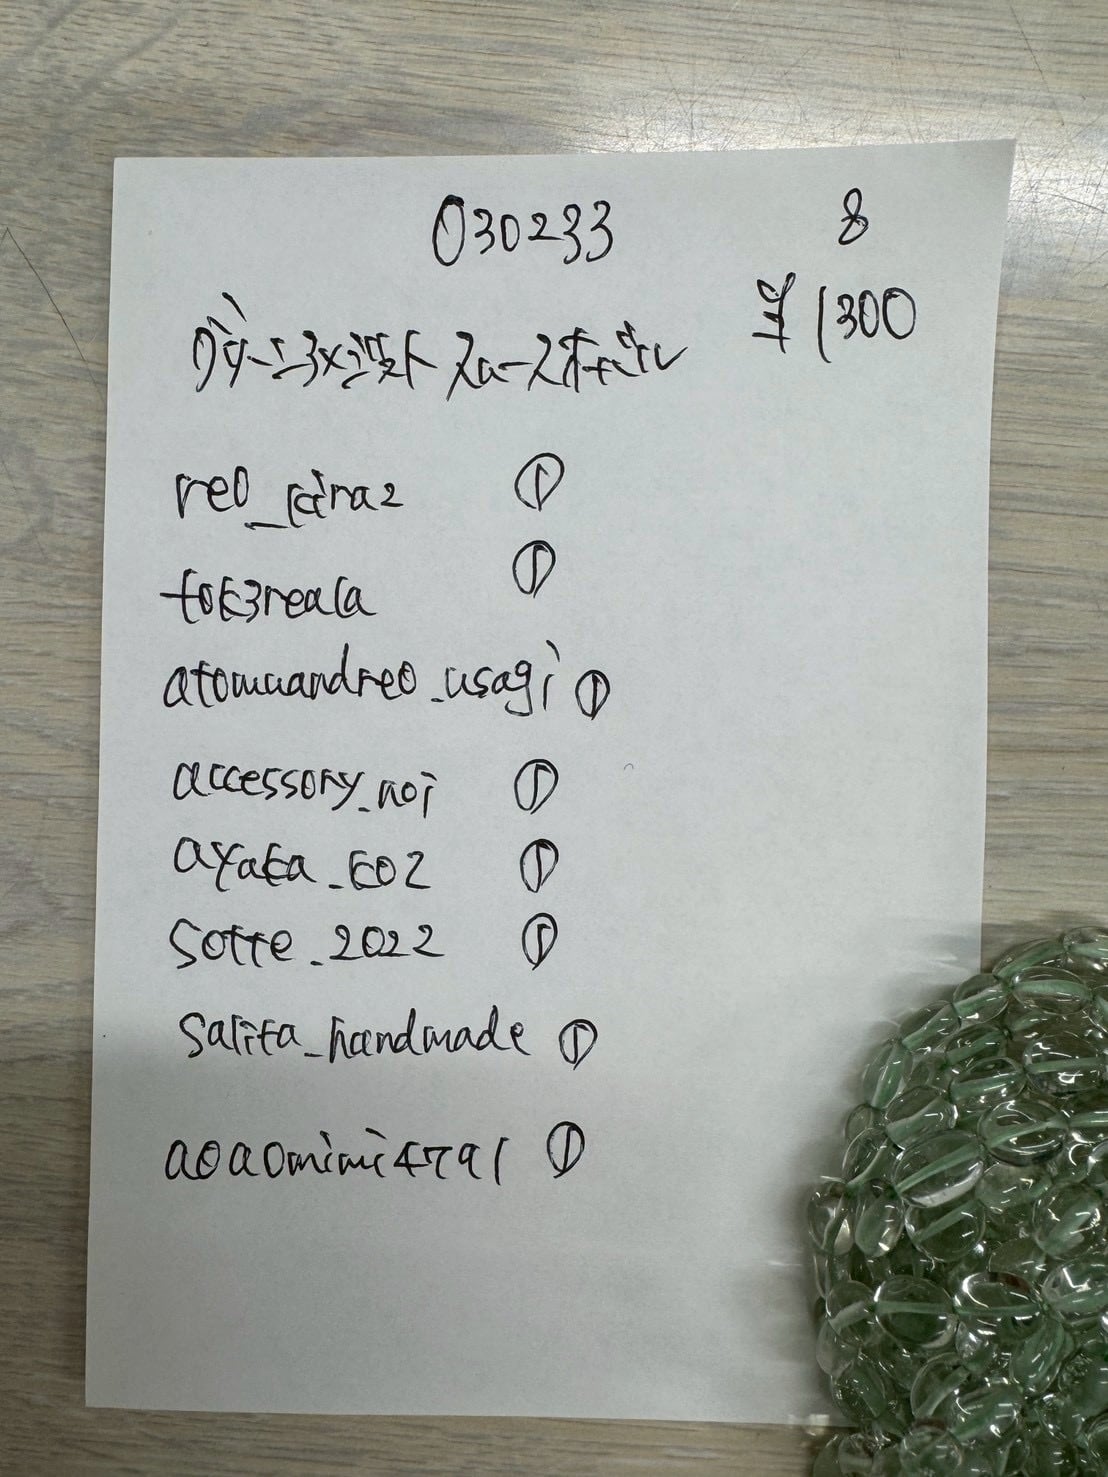 030233
8
¥1300
reo_kira2
tok3reala
atomuandreo_usagi ①
①
①
accessory_noi ①
ayaka_602 ①
sotte_2022 ①
salita_handmade ①
aoaomimi4791 ①